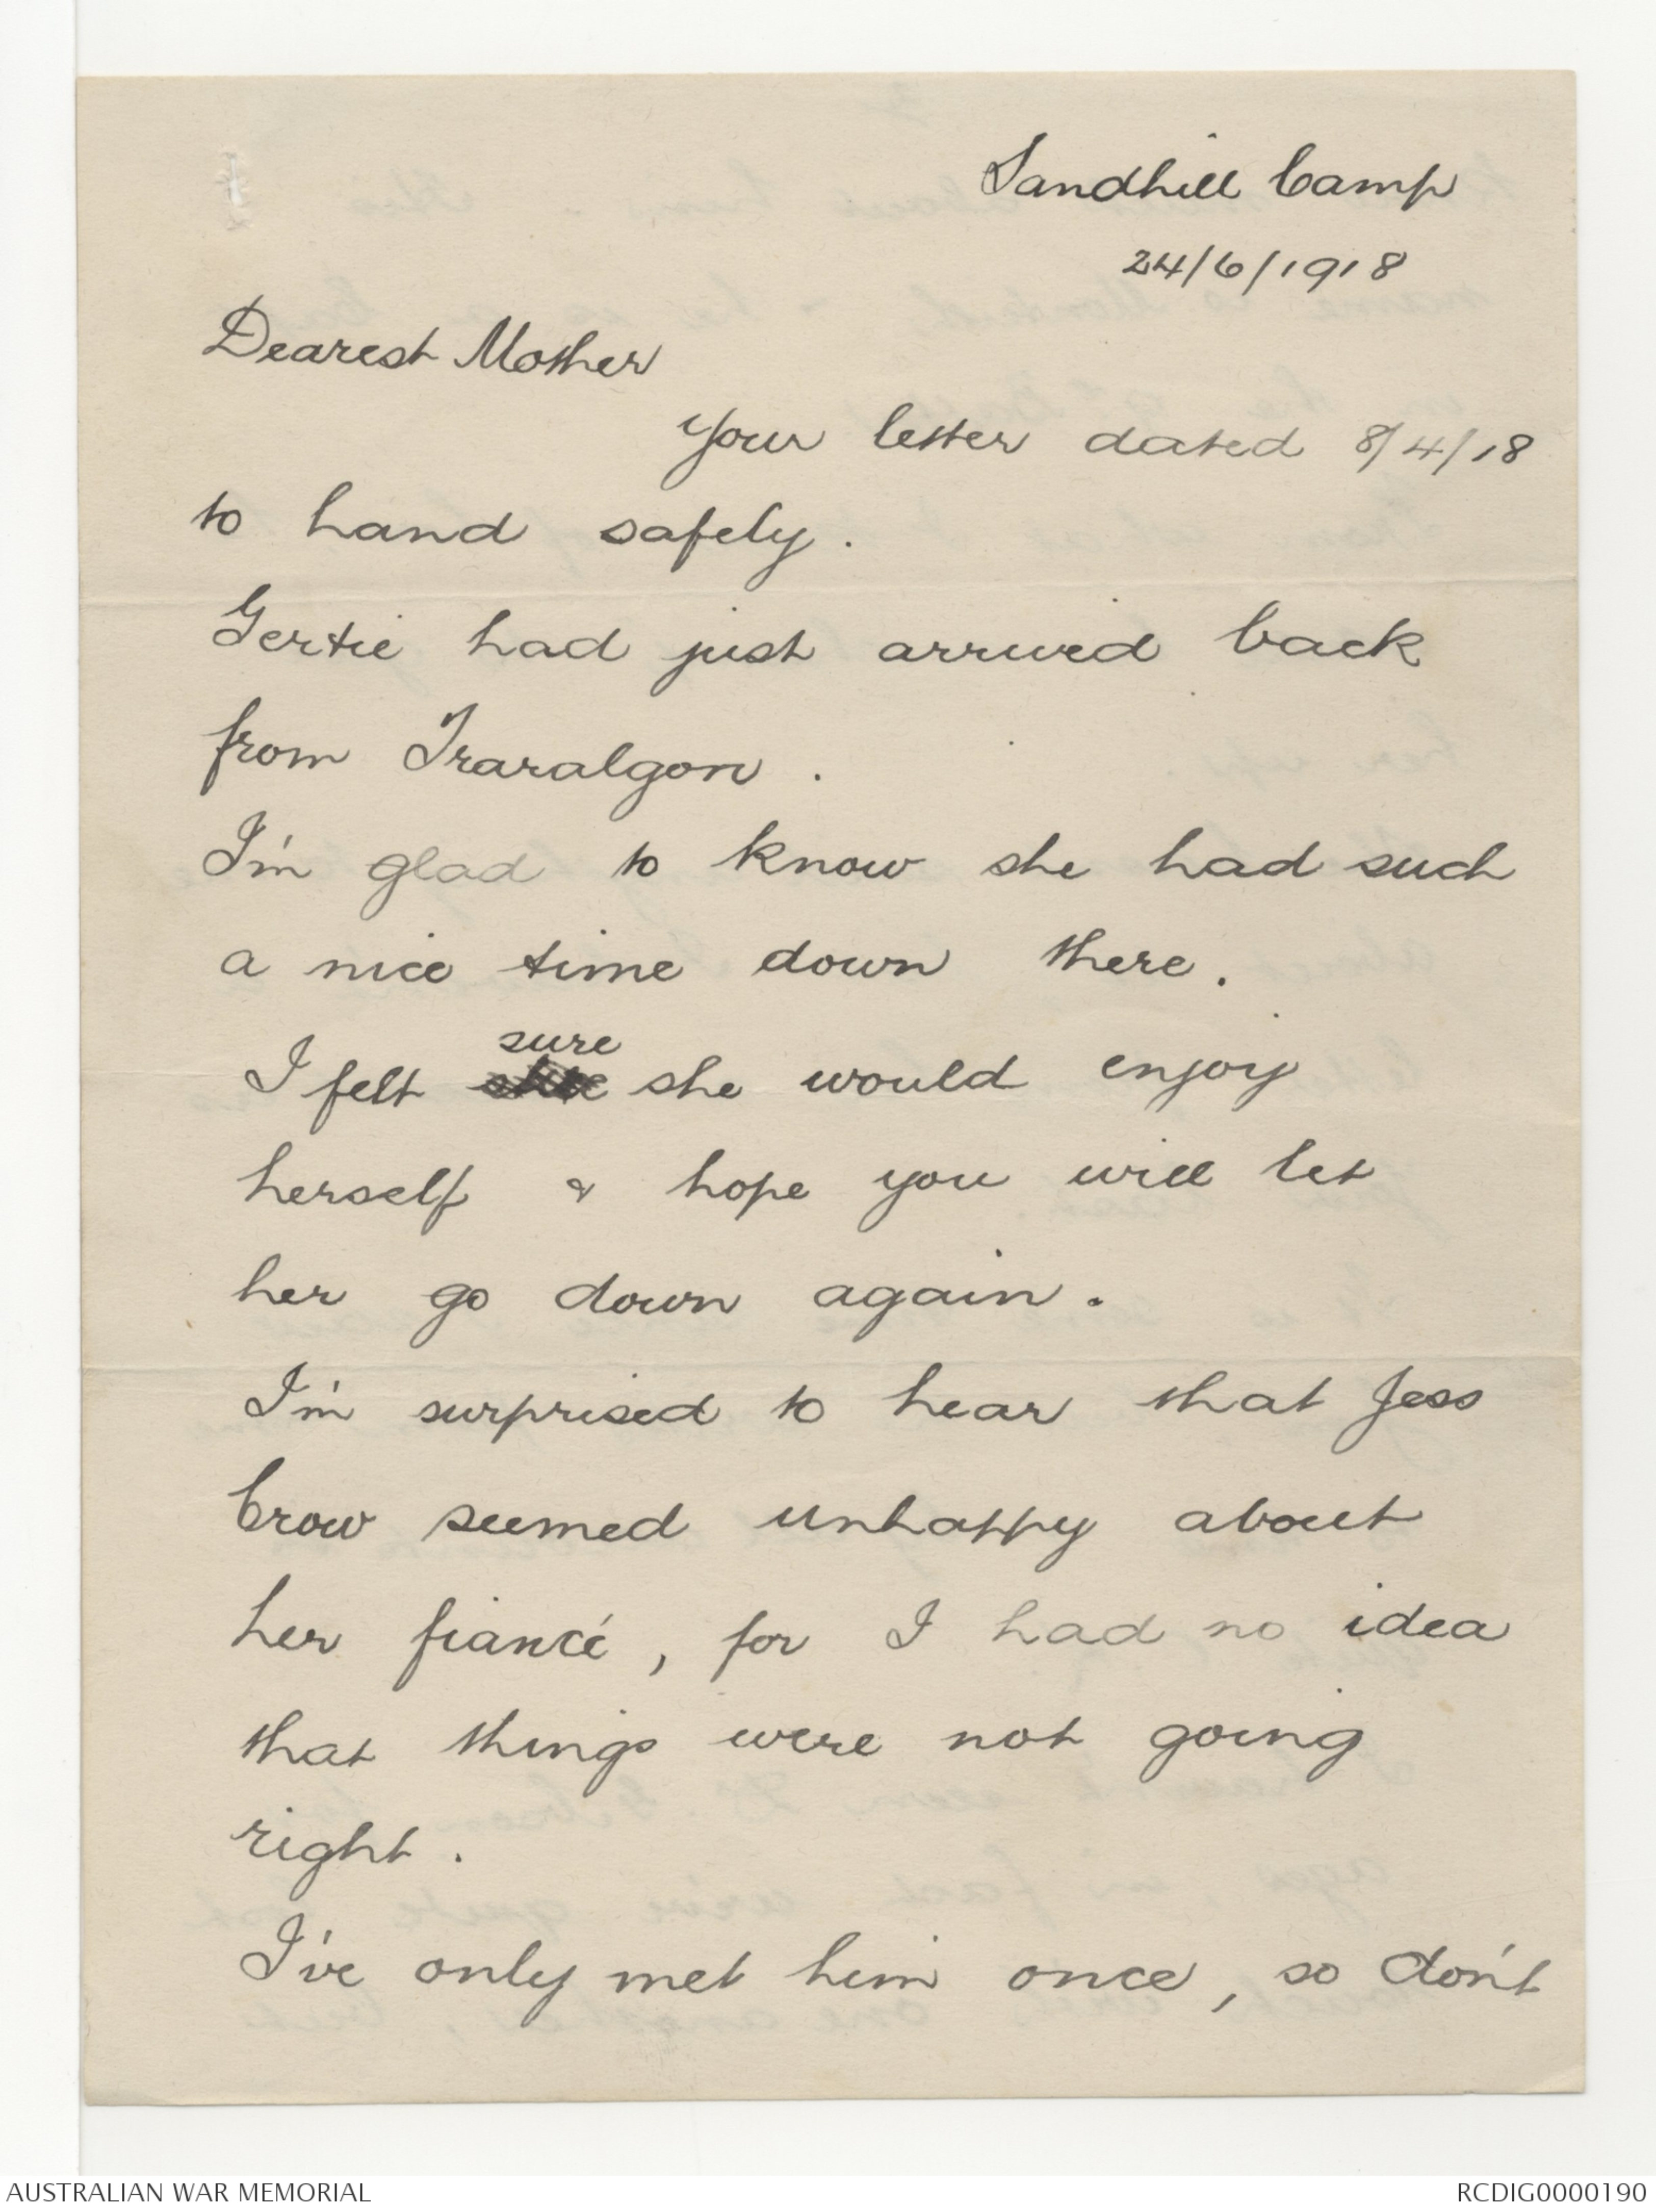 Sandhill Camp
24/6/1918
Dearest Mother
Your letter dated 8/4/18
to hand safely.
Gertie had just arrived back
from Traralgon.
I'm glad to know she had such
a nice time down there.
sure
I felt she would enjoy
herself & hope you will let
her go down again.
I'm surprised to hear that Jess
Crow seemed unhappy about
her fiancé, for I had no idea
that things were not going
right.
I've only met him once, so don't
AUSTRALIAN WAR MEMORIAL
RCDIG0000190